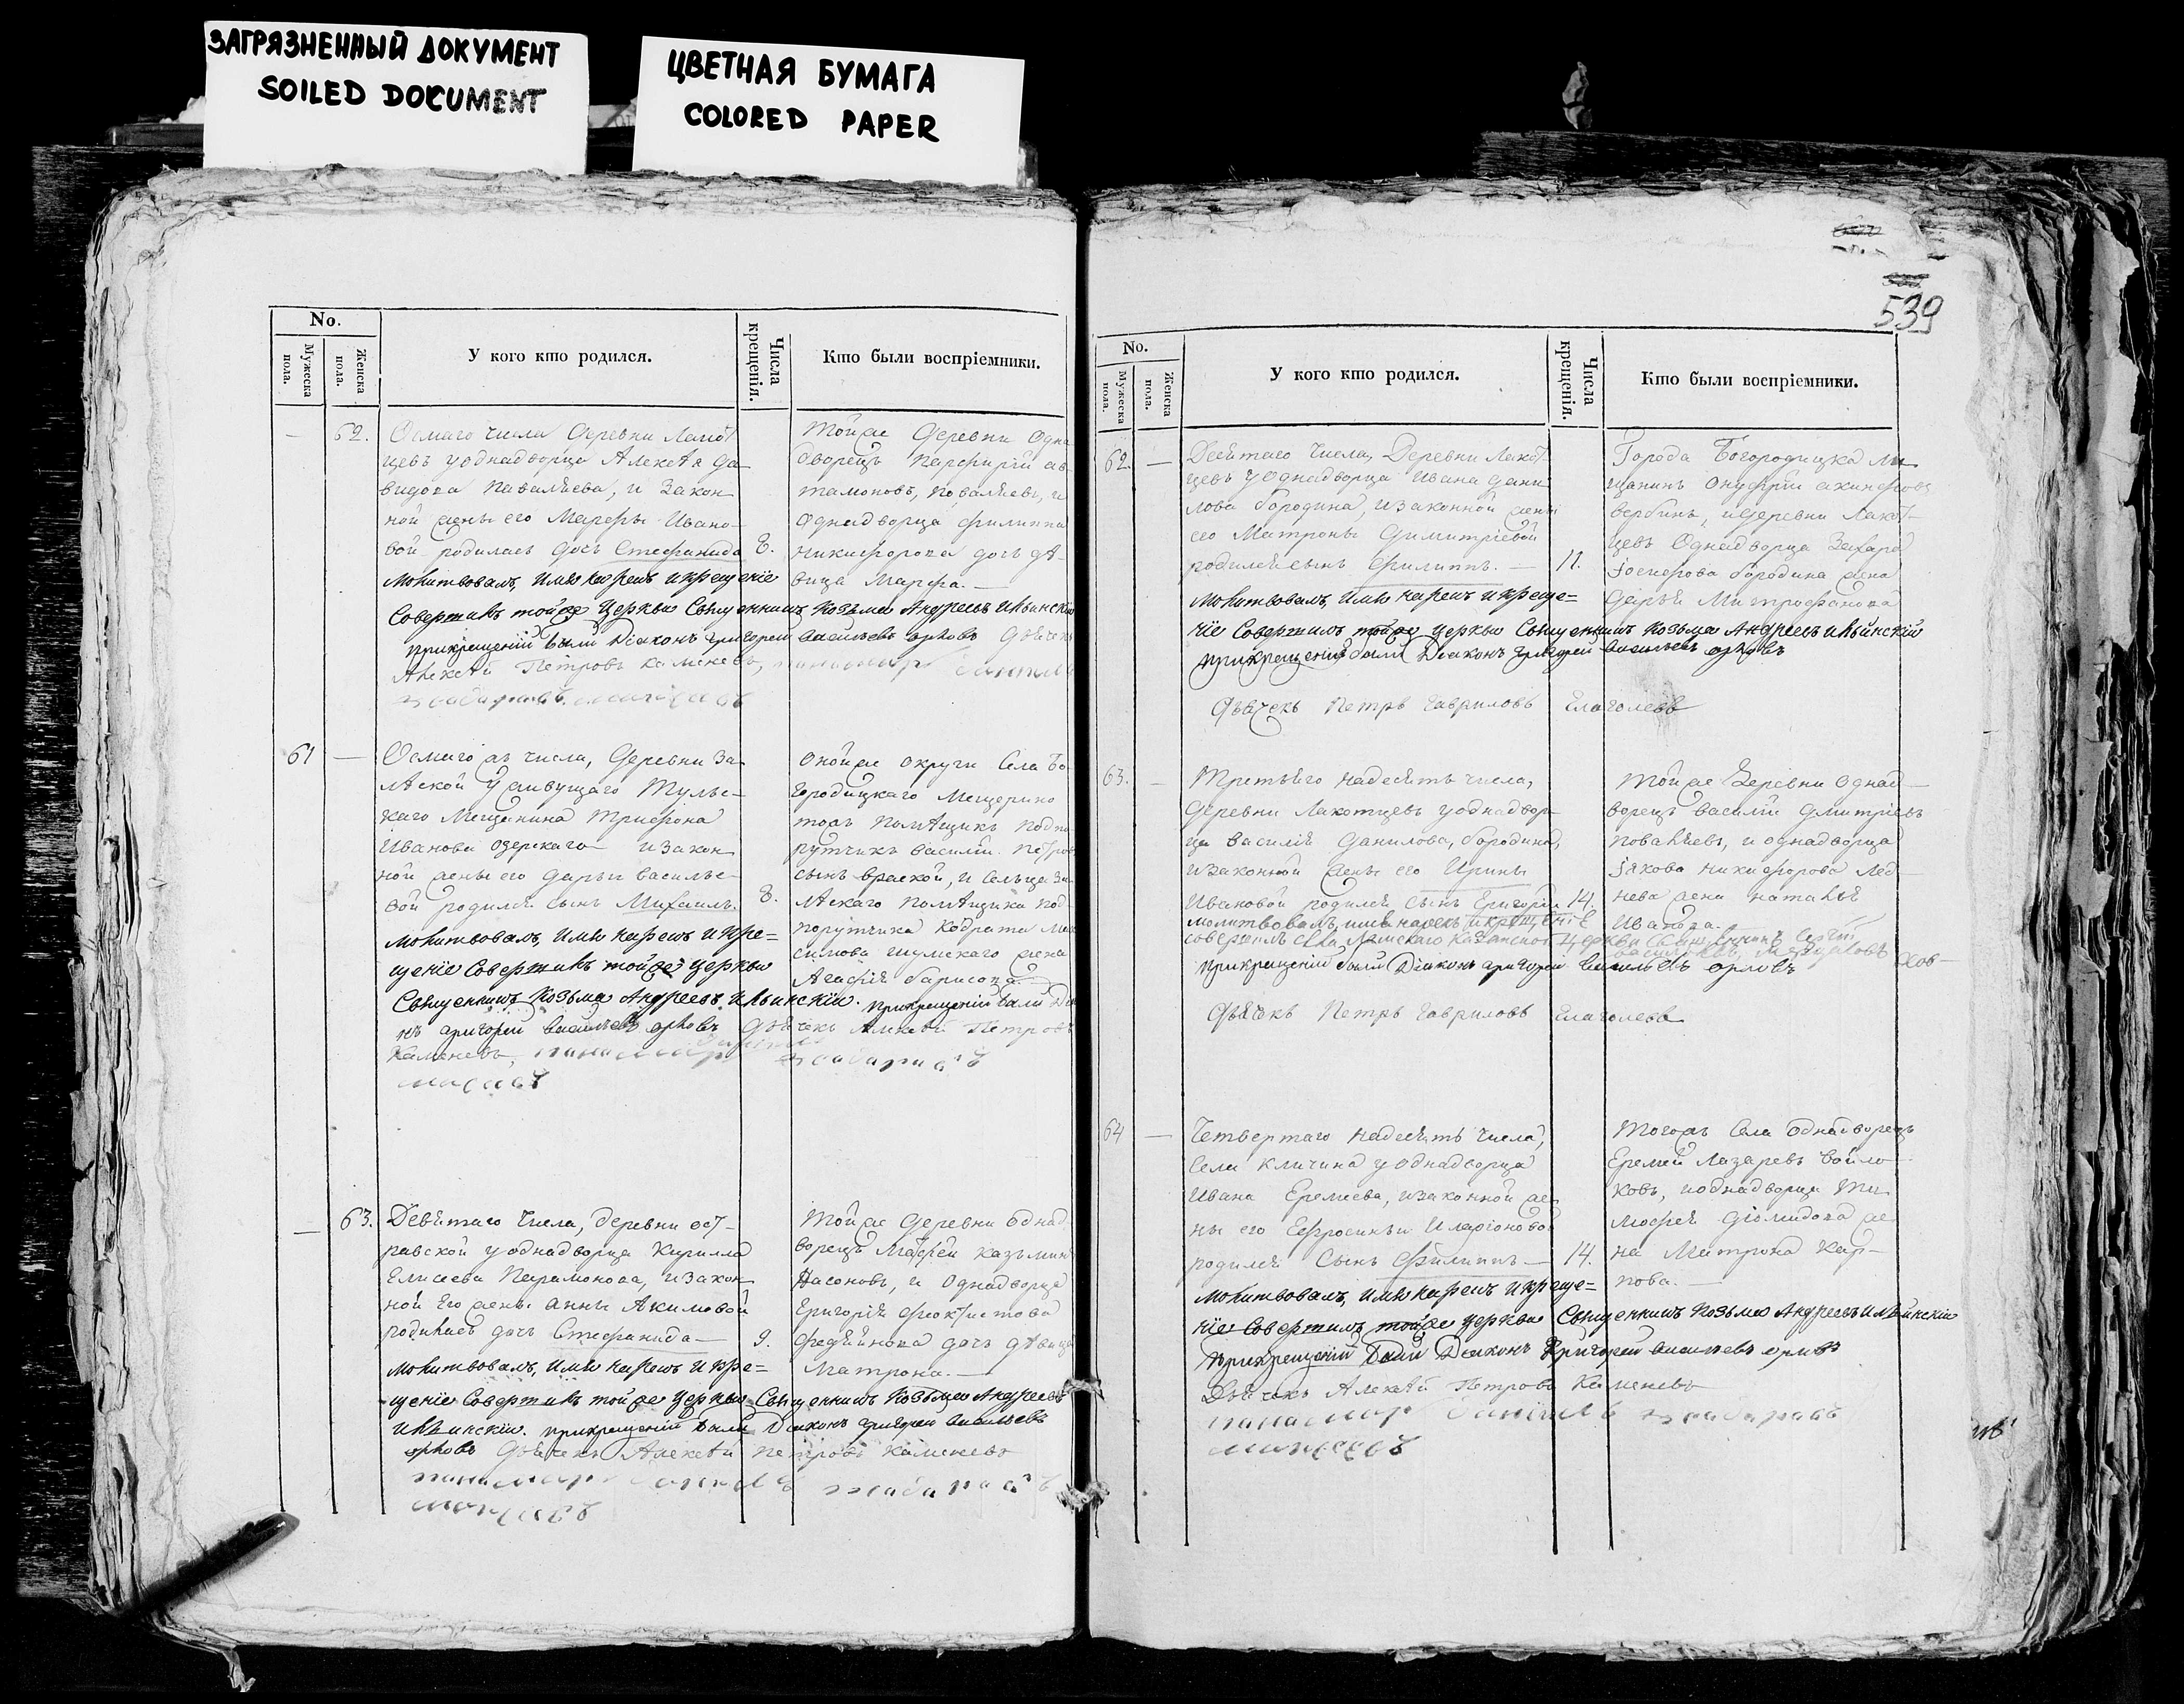 ЗАГРЯЗНЕННЫЙ ДОКУМЕНТ
SOILED DOCUMENT
ЦВЕТНАЯ БУМАГА
COLORED PAPER
No.
Мужеска пола.
Женска пола.
У кого кто родился.
Числа крещенія.
Кто были воспріемники.
— 62.
Осмаго числа Деревни Лакот
цевъ у однадворца Алексѣя Да
видова Паваляева, и Закон
ной жены его Марѳы Ивано
вой родилась дочь Стефанида 8.
Молитвовалъ, имя нарекъ и крещеніе
Совершилъ тойже Церкви Священникъ Козьма Андреевъ Ильинскій
при крещеніи были Діаконъ Григорей Васильевъ Орловъ Дьячекъ
Алексѣй Петровъ Каменевъ,
Тойже Деревни Одно
дворецъ Парфирій Ав
тамоновъ, Поваляевъ, и
Однадворца Филиппа
Никифорова дочь дѣ
вица Марѳа.—
61 —
Осмаго жъ числа, Деревни За
лѣской у живущаго Тульс
каго Мещанина Трифона
Иванова Озерскаго и закон
ной жены его Дарьи Василье
вой родился сынъ Михаилъ. 8.
Молитвовалъ, имя нарекъ и кре=
щеніе Совершилъ тойже Церкви
Священникъ Козьма Андреевъ Ильинскій. при крещеніи были Діа
нъ Григорей Васильевъ Орловъ Дьячекъ Алексѣй Петровъ
Каменевъ,
Онойже Округи Села Бо
городицкаго Мещерино
тожъ Помѣщикъ Подпо
рутчикъ Василій Петров
сынъ Враской, и Сельца За
лѣскаго Помѣщика Под
порутчика Кодрата Мак
симова Шумскаго жена
Агафія Борисова
— 63.
Девятаго Числа, деревни Ост
равской у однадворца Кирилла
Елисеева Парамонова, и закон
ной Его жены Анны Акимовой
родилась дочь Стефанида— 9.
Молитвовалъ, имя нарекъ и кре=
щеніе Совершилъ тойже Церкви Священникъ Козьма Андреевъ
Ильинскій. при крещеніи были Діаконъ Григорей Васильевъ
Орловъ Дьячекъ Алексѣй Петровъ Каменевъ
Тойже Деревни Однад
ворецъ Матфей Казьмин
Насоновъ, и Однадворца
Григорія Феоктистова
дочь дѣвица
Матрона.—
539
No.
Мужеска пола.
Женска пола.
У кого кто родился.
Числа крещенія.
Кто были воспріемники.
62 —
Десятаго Числа, Деревни Лакот
цевъ у Однадворца Ивана Дани
лова Бородина, и законной жены
его Матроны Димитріевой
родился сынъ Филиппъ. — 11.
Молитвовалъ, имя нарекъ и креще=
ніе Совершилъ тойже Церкви Священникъ Козьма Андреевъ Ильинскій
при крещеніи были Діаконъ Григорей Васильевъ Орловъ
Дьячекъ Петръ Гавриловъ Глаголевъ
Города Богородицка Мѣ
щанинъ Онуфрій
Вербинъ, и Деревни Лакот
цевъ Однадворца Захара
Іосифова Бородина жена
Дарья Митрофанова
63. —
Третьяго надесять числа,
Деревни Лакотцевъ у однадвор
ца Василія Данилова, Бородина,
и законной жены его Ирины
Ивановой родился сынъ Григорій 14.
молитвовалъ, имя нарекъ и крещеніе
совершилъ Села Казанской Церкви Священникъ
при крещеніи были Діаконъ Григорей Васильевъ Орловъ
Дьячекъ Петръ Гавриловъ Глаголевъ
Тойже Деревни Однад
ворецъ Василій Дмитріевъ
Поваляевъ, и однадворца
Іякова Никифорова Лед
нева жена Наталья
Иванова.
64 —
Четвертаго надесять Числа,
Села Кличина у однадворца
Ивана Еремеева, и законной же
ны его Ефросиньи Иларіоновой
родился Сынъ Филиппъ — 14.
Молитвовалъ, имя нарекъ и креще=
ніе Совершилъ тойже Церкви Священникъ Козьма Андреевъ Ильинскій
при крещеніи были Діаконъ Григорей Васильевъ Орловъ
Дьячекъ Алексѣй Петровъ Каменевъ
Тогожъ Села Однадворецъ
Еремей Лазаревъ Войло
ковъ, и однадворца Ти
мофея Діомидова же
на Матрона Кар
пова.—